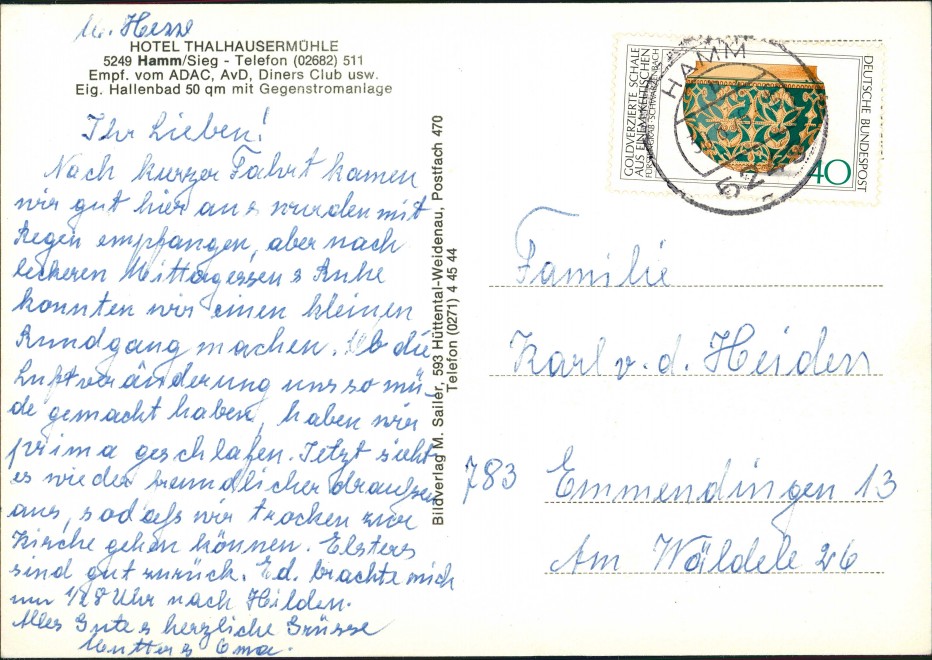 M. Hesse
HOTEL THALHAUSERMÜHLE
5249 Hamm/Sieg - Telefon (02682) 511
Empf. vom ADAC, AvD, Diners Club usw.
Eig. Hallenbad 50 qm mit Gegenstromanlage
Ihr Lieben!
Nach kurzer Fahrt kamen
wir gut hier an & wurden mit
Regen empfangen, aber nach
leckeren Mittagessen & Ruhe
konnten wir einen kleinen
Rundgang machen. Ob die
Luftveränderung uns so mü-
de gemacht haben, haben wir
prima geschlafen. Jetzt sieht
es wieder freundlicher draußen
aus, sodaß wir trocken zur
Kirche gehen können. Elsters
sind gut zurück. Ed. brachte mich
um 1/2 8 Uhr nach Hilden.
Alles Gute & herzliche Grüsse
Mutter & Oma.
Bildverlag M. Sailer, 593 Hüttental-Weidenau, Postfach 470
Telefon (0271) 4 45 44
GOLDVERZIERTE SCHALE
AUS EINEM KELTISCHEN
FÜRSTENGRAB · SCHWARZENBACH
DEUTSCHE BUNDESPOST
40
HAMM
Familie
Karl v. d. Heiden
783 Emmendingen 13
Am Wäldele 26